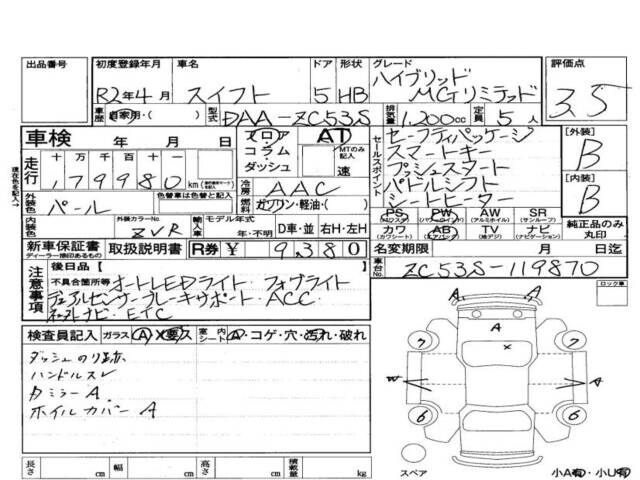 出品番号 初度登録年月 車名 ドア 形状 グレード 評価点
R2年4月 スイフト 5 HB ハイブリッド MGリミテッド 3.5
車歴 自家用・( ) 型式 DAA-ZC53S 排気量 1,200cc 定員 5人
車検 年 月 日 フロア・コラム・ダッシュ AT MTのみ記入 速
セールスポイント セーフティパッケージ
スマートキー
プッシュスタート
パドルシフト
シートヒーター
[外装] B
[内装] B
走行 十万 千 百 十 179980 km
冷房 AAC
外装色 パール 色替車は色替と記入 燃料 ガソリン・軽油・( )
内装色 外装カラーNo. ZVR 輸入車 モデル年式 年・不明 D車・並 右H・左H
PS PW AW SR
(パワーウィンド) (アルミホイル) (サンルーフ)
カワ AB TV ナビ
(エアバッグ) (ナビゲーション)
純正品のみ丸印
新車保証書 取扱説明書 R券 ¥ 9,380
ディーラー捺印あるもの
名変期限 月 日迄
車台No. ZC53S-119870
注意事項 後日品[ ]
不具合箇所等 オートLEDライト・フォグライト
デュアルセンサーブレーキサポート・ACC・
ETC
ロック車
検査員記入 ガラス (A)・X(要)ス 室内 シート (A)・コゲ・穴・汚れ・破れ
ダッシュのり跡
ハンドルスレ
カミラーA
ホイルカバーA
A A
A
X
7 7
W A
6 6
スペア
長さ cm 幅 cm 高さ cm 積載量 kg
小A有・小U有